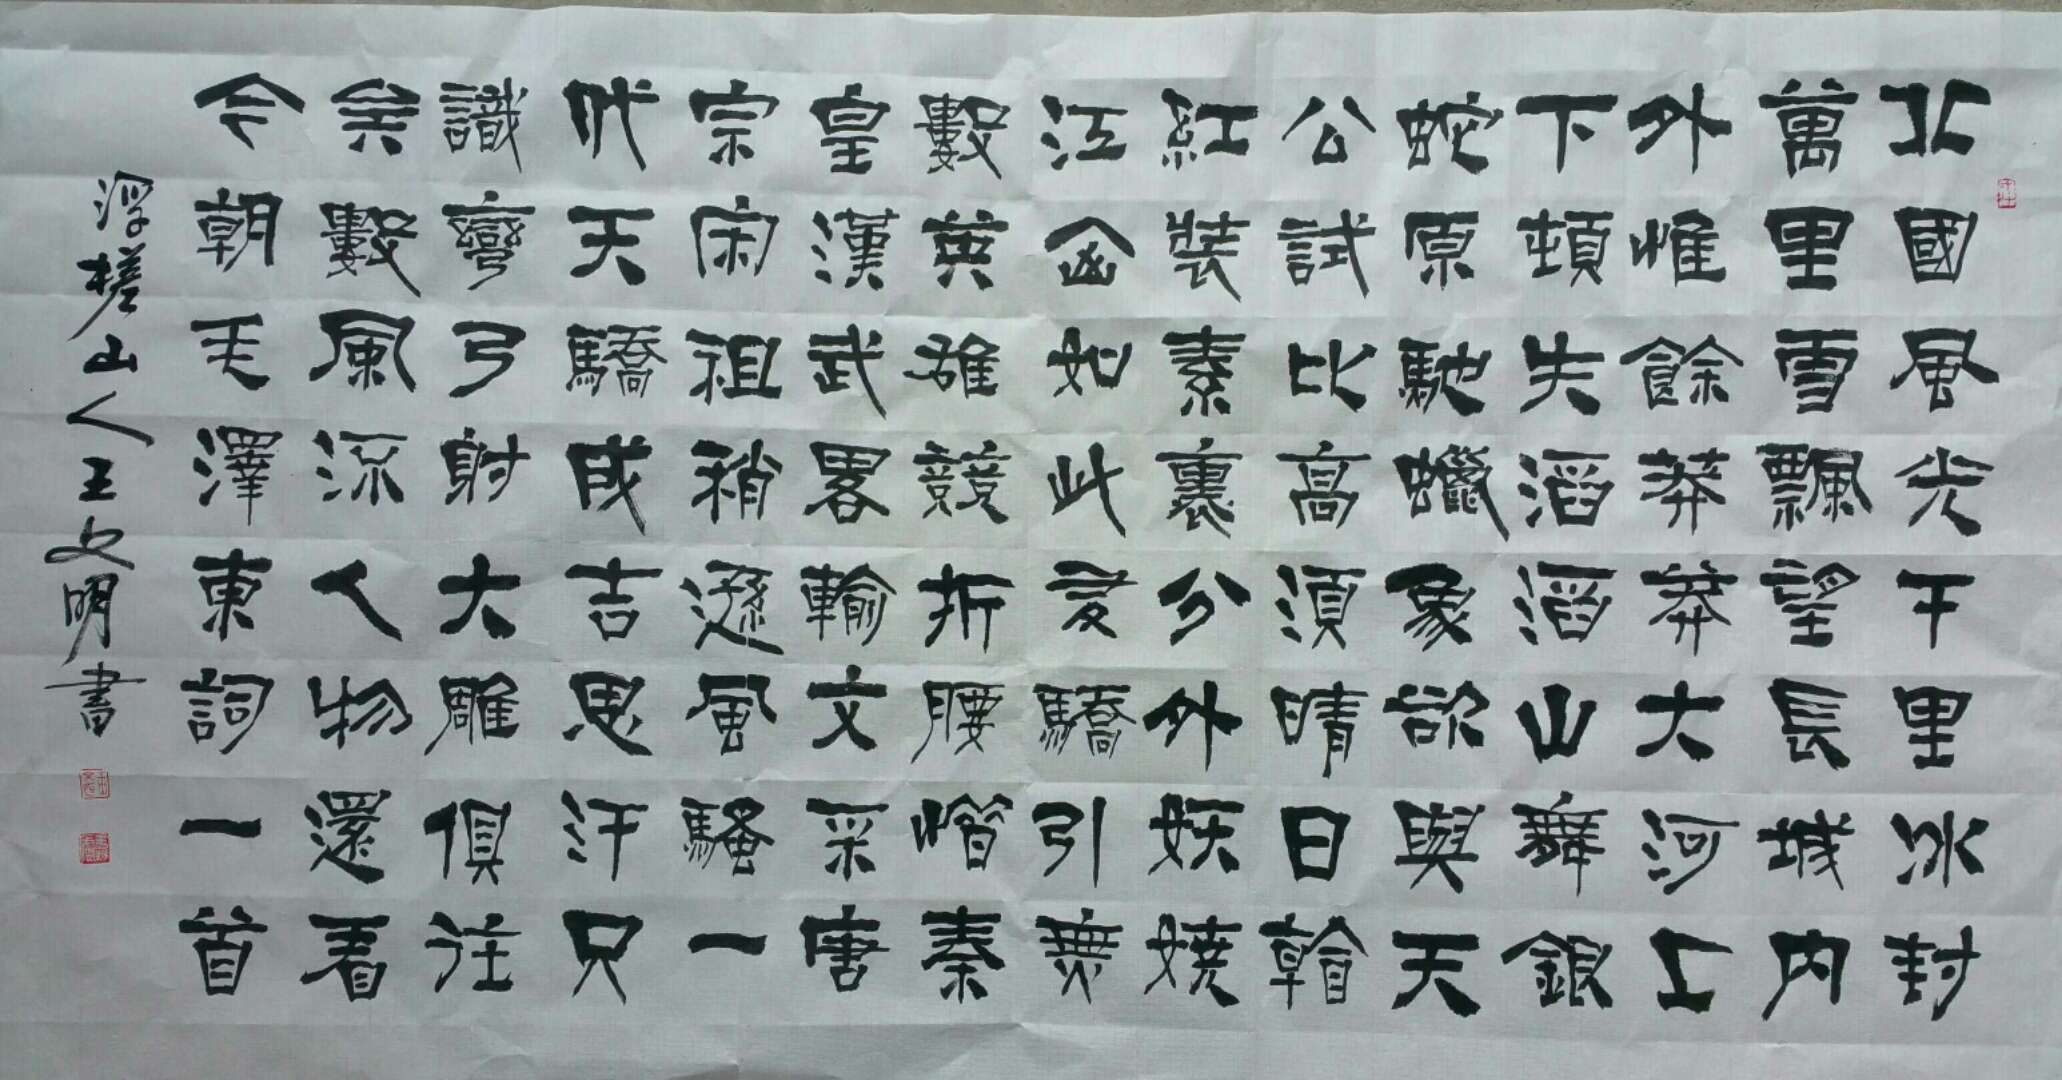 北國風光千里冰封
萬里雪飄望長城内
外惟餘莽莽大河上
下頓失滔滔山舞銀
蛇原馳蠟象欲與天
公試比高須晴日看
紅裝素裹分外妖嬈
江山如此多驕引無
數英雄競折腰惜秦
皇漢武畧輸文采唐
宗宋祖稍遜風騷一
代天驕成吉思汗只
識彎弓射大雕俱往
矣數風流人物還看
今朝毛澤東詞一首
浮槎山人王文明書